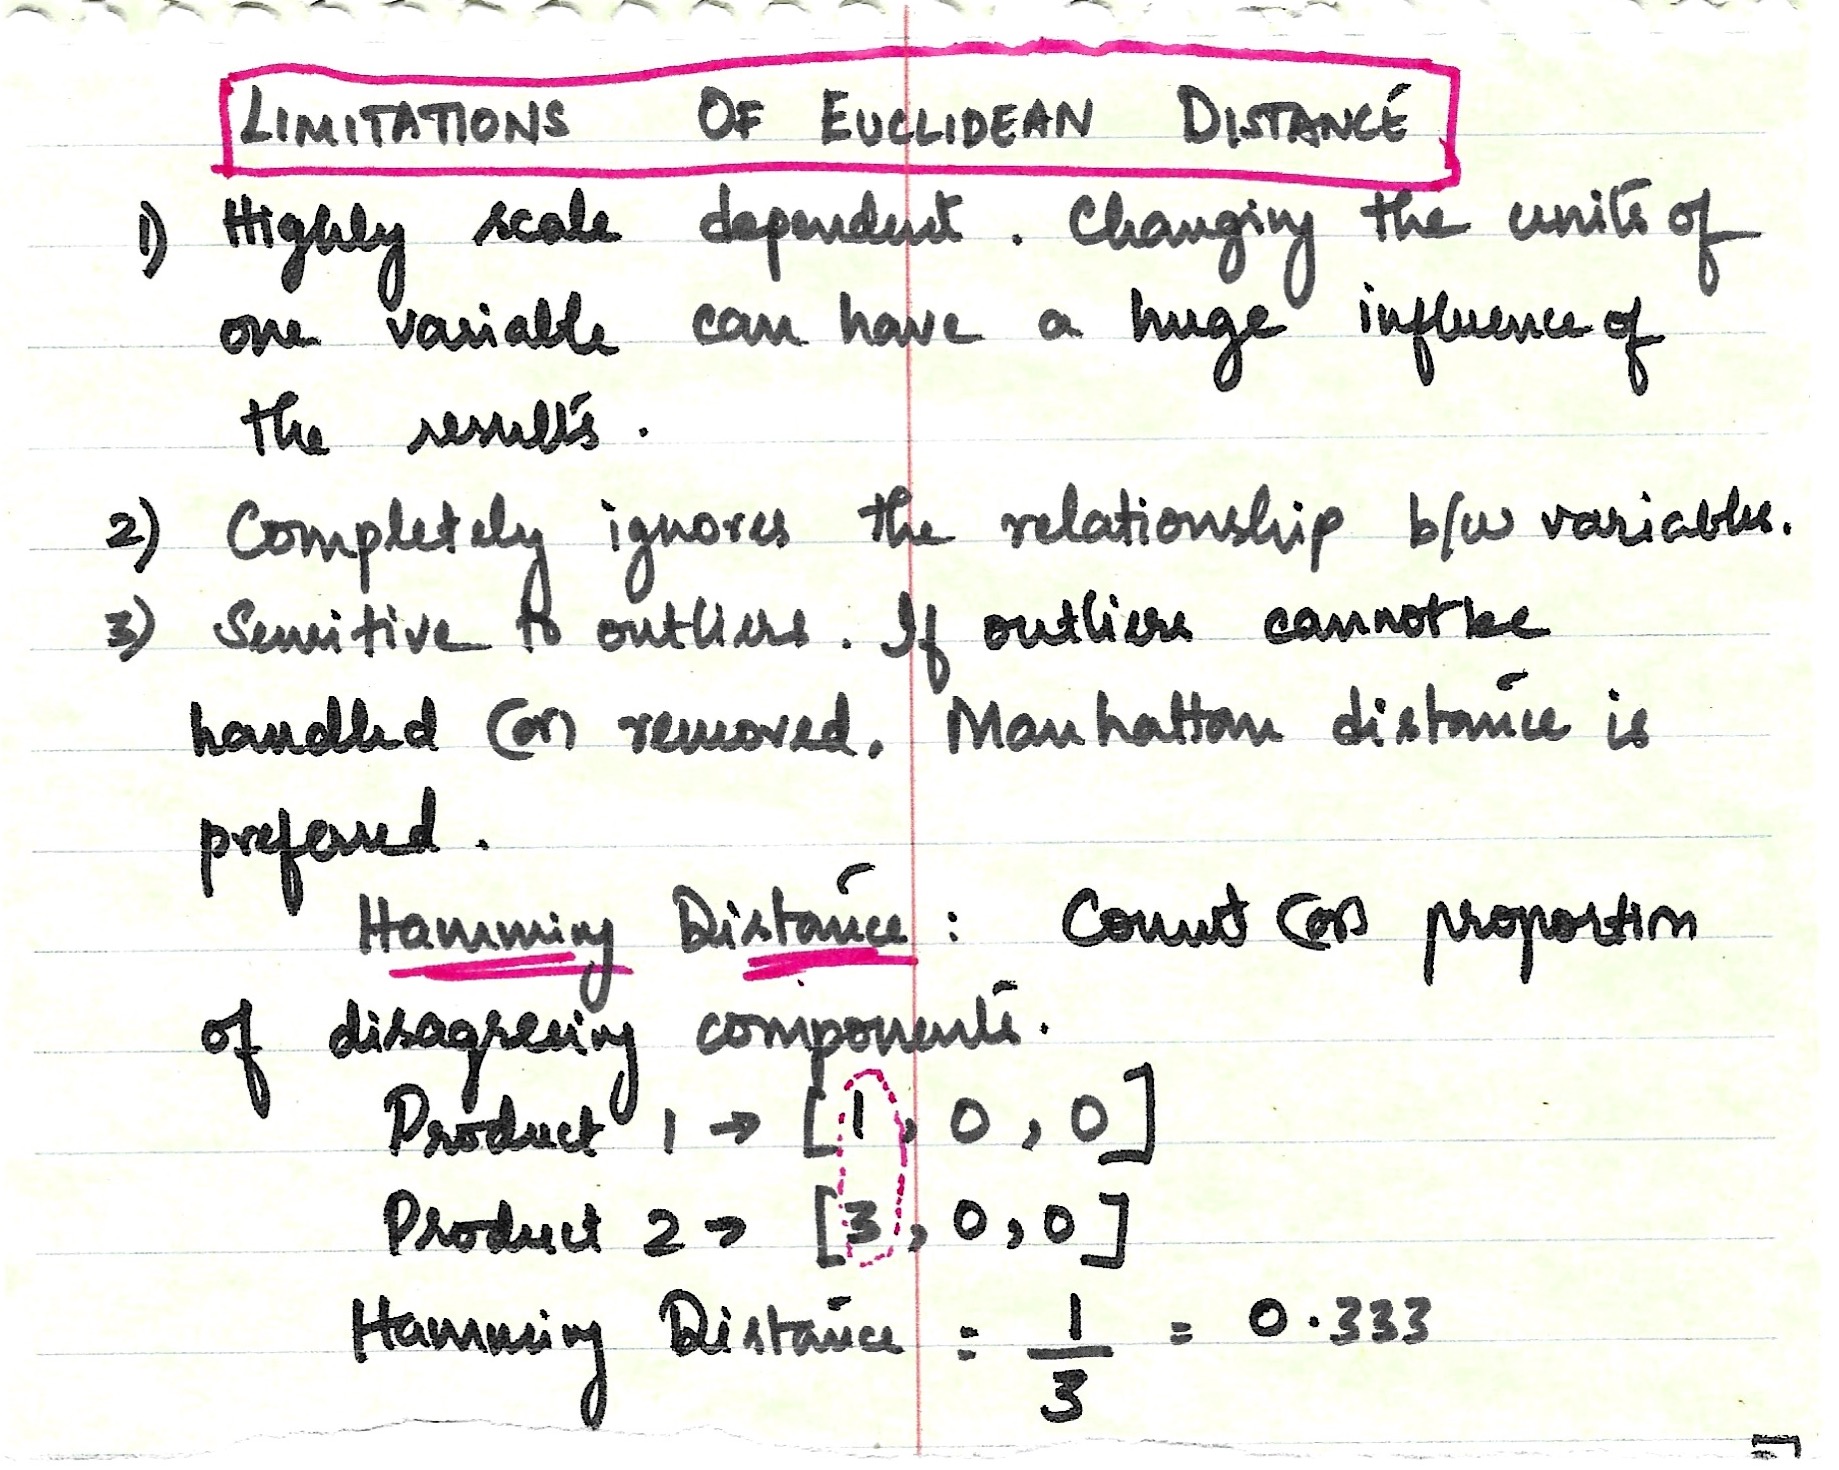 LIMITATIONS OF EUCLIDEAN DISTANCE
1) Highly scale dependent. Changing the units of
one variable can have a huge influence of
the results.
2) Completely ignores the relationship b/w variables.
3) Sensitive to outliers. If outliers cannot be
handled (or) removed, Manhattan distance is
preferred.
Hamming Distance : Count (or) proportion
of disagreeing components.
Product 1 → [1, 0, 0]
Product 2 → [3, 0, 0]
Hamming Distance = 1/3 = 0.333